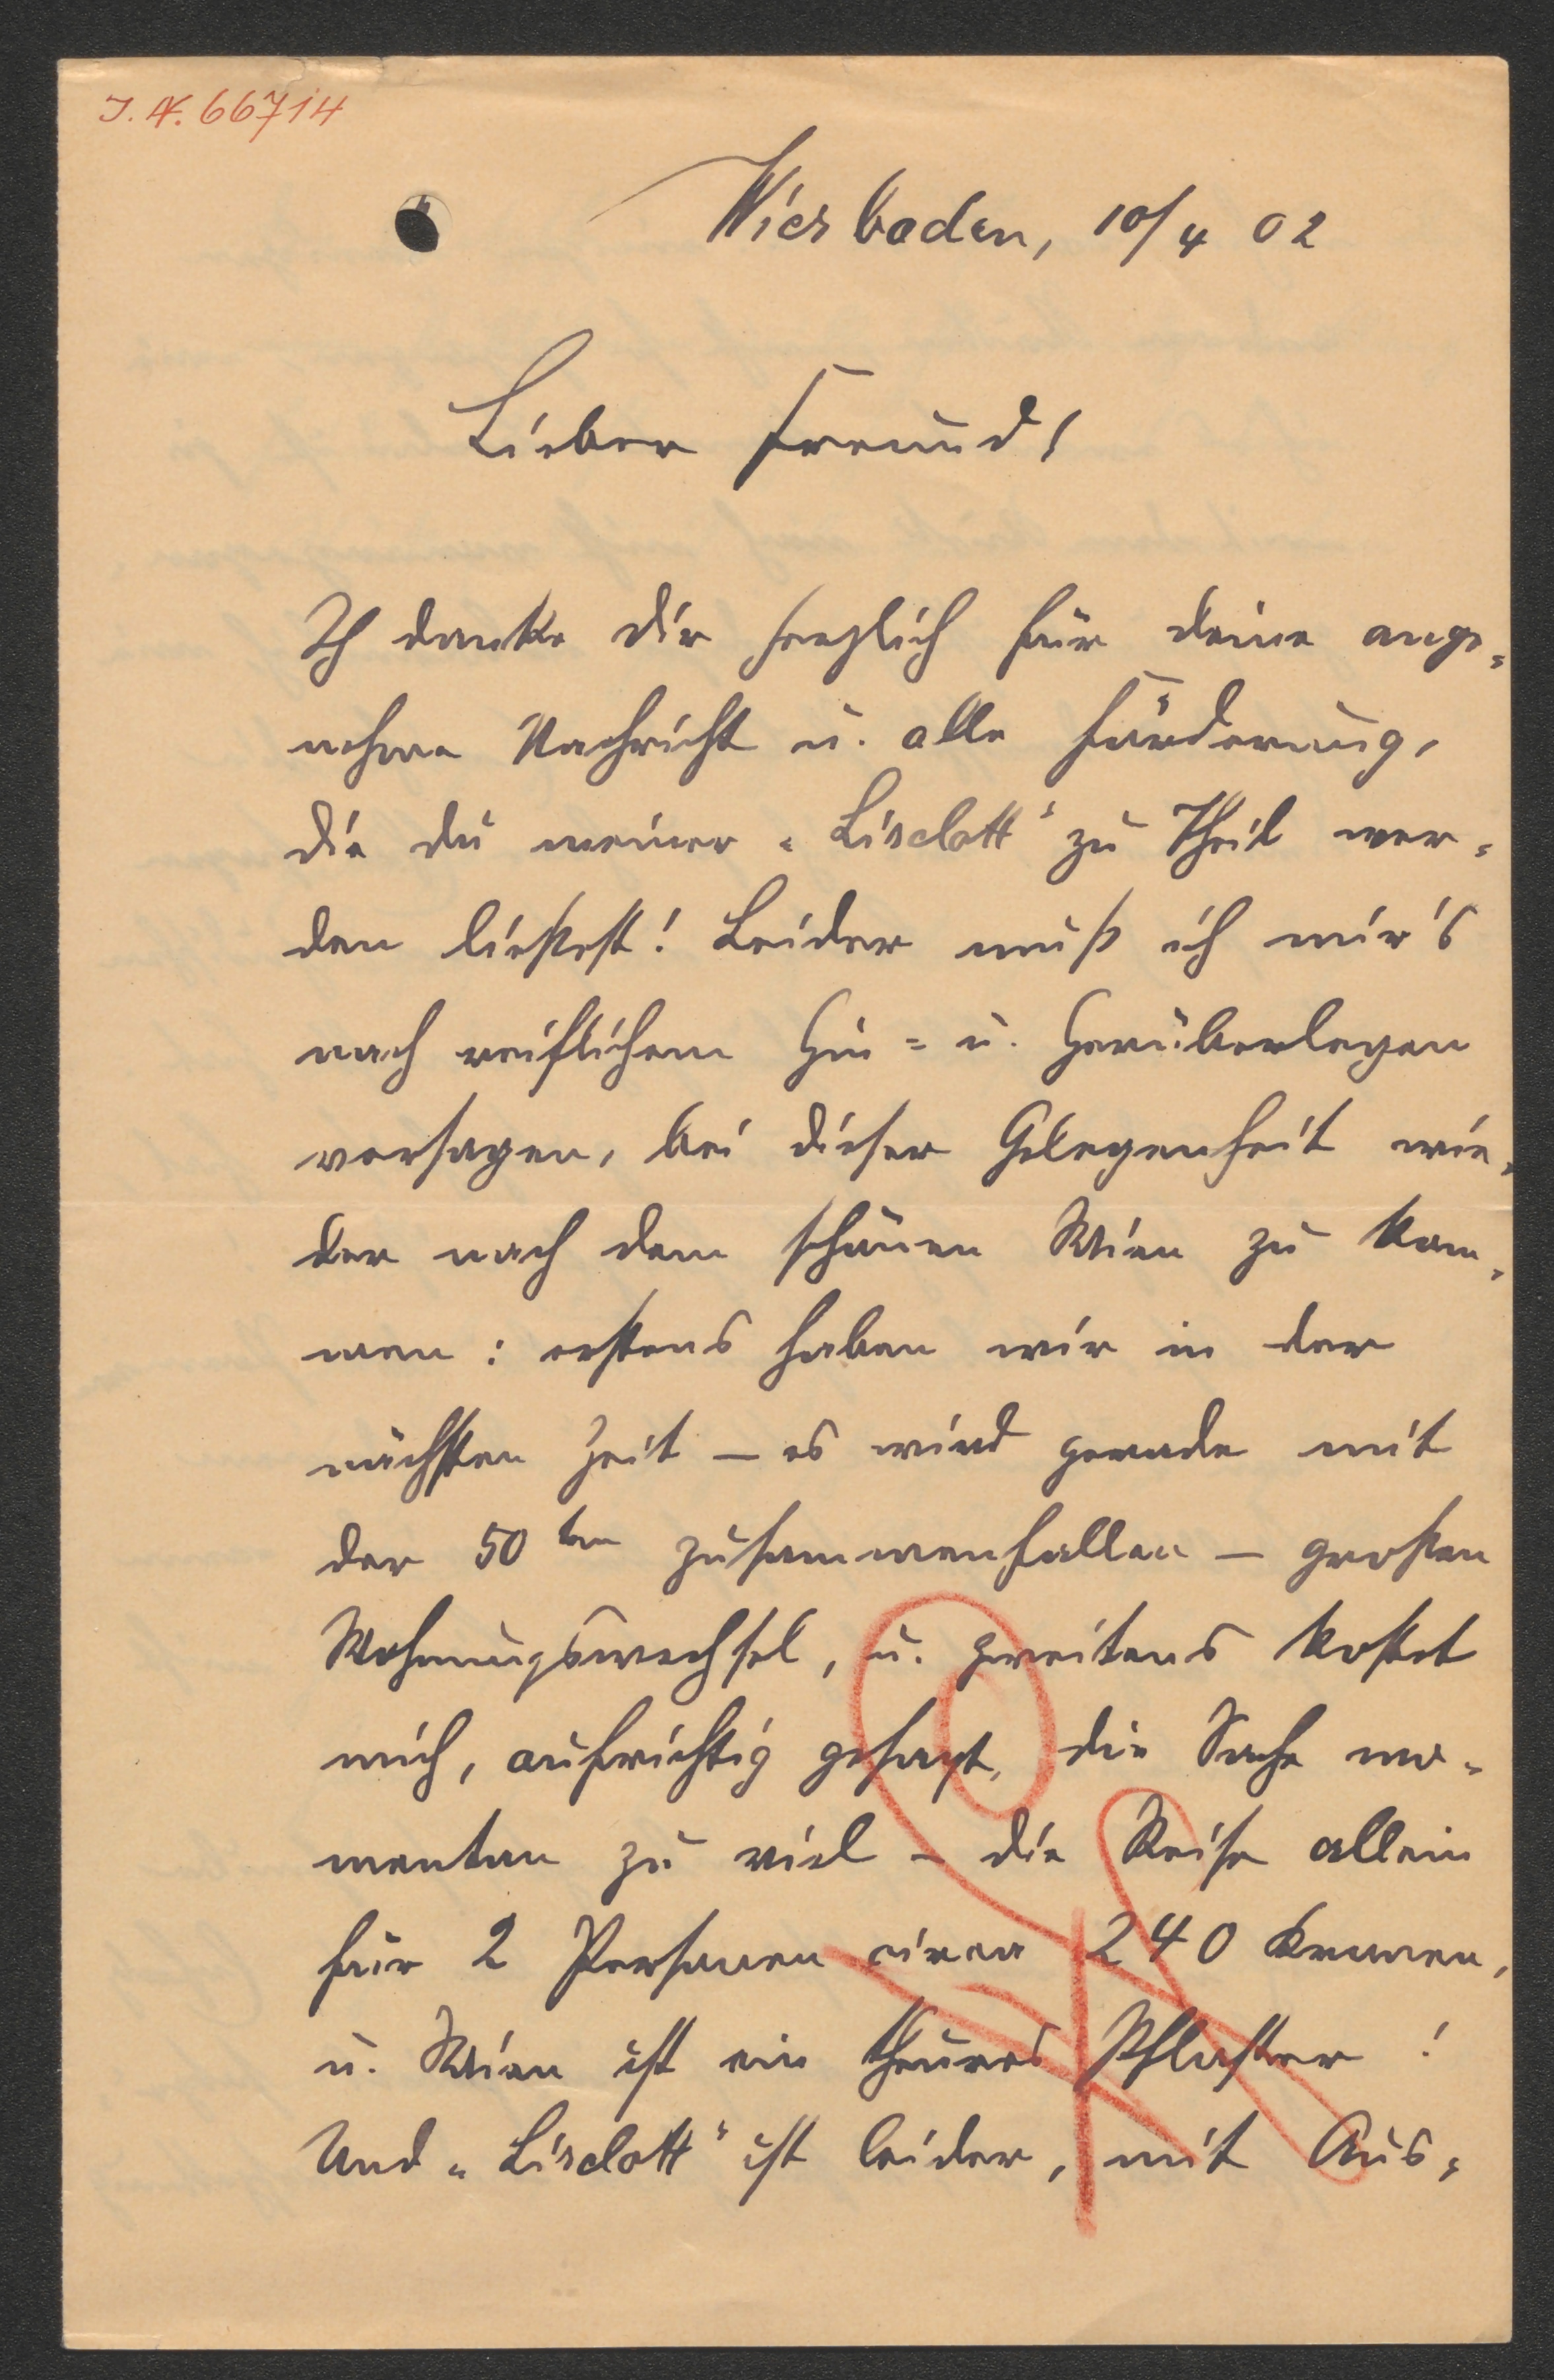 J. N. 66714
Wiesbaden, 10/4 02
Lieber Freund!
Ich danke dir herzlich für deine ange=
nehme Nachricht u. alle Förderung,
die du meiner „Liselott“ zu Theil wer=
den ließest! Leider muß ich mir's
nach reiflichem Hin= u. Herüberlegen
versagen, bei dieser Gelegenheit wie=
der nach dem schönen Wien zu kom=
men: erstens haben wir in der
nächsten Zeit – es wird gerade mit
der 50ten zusammenfallen – großen
Wohnungswechsel, u. zweitens kostet
mich, aufrichtig gesagt, die Sache mo=
mentan zu viel – die Reise allein
für 2 Personen circa 240 Kronen,
u. Wien ist ein theures Pflaster!
Und „Liselott“ ist leider, mit Aus=